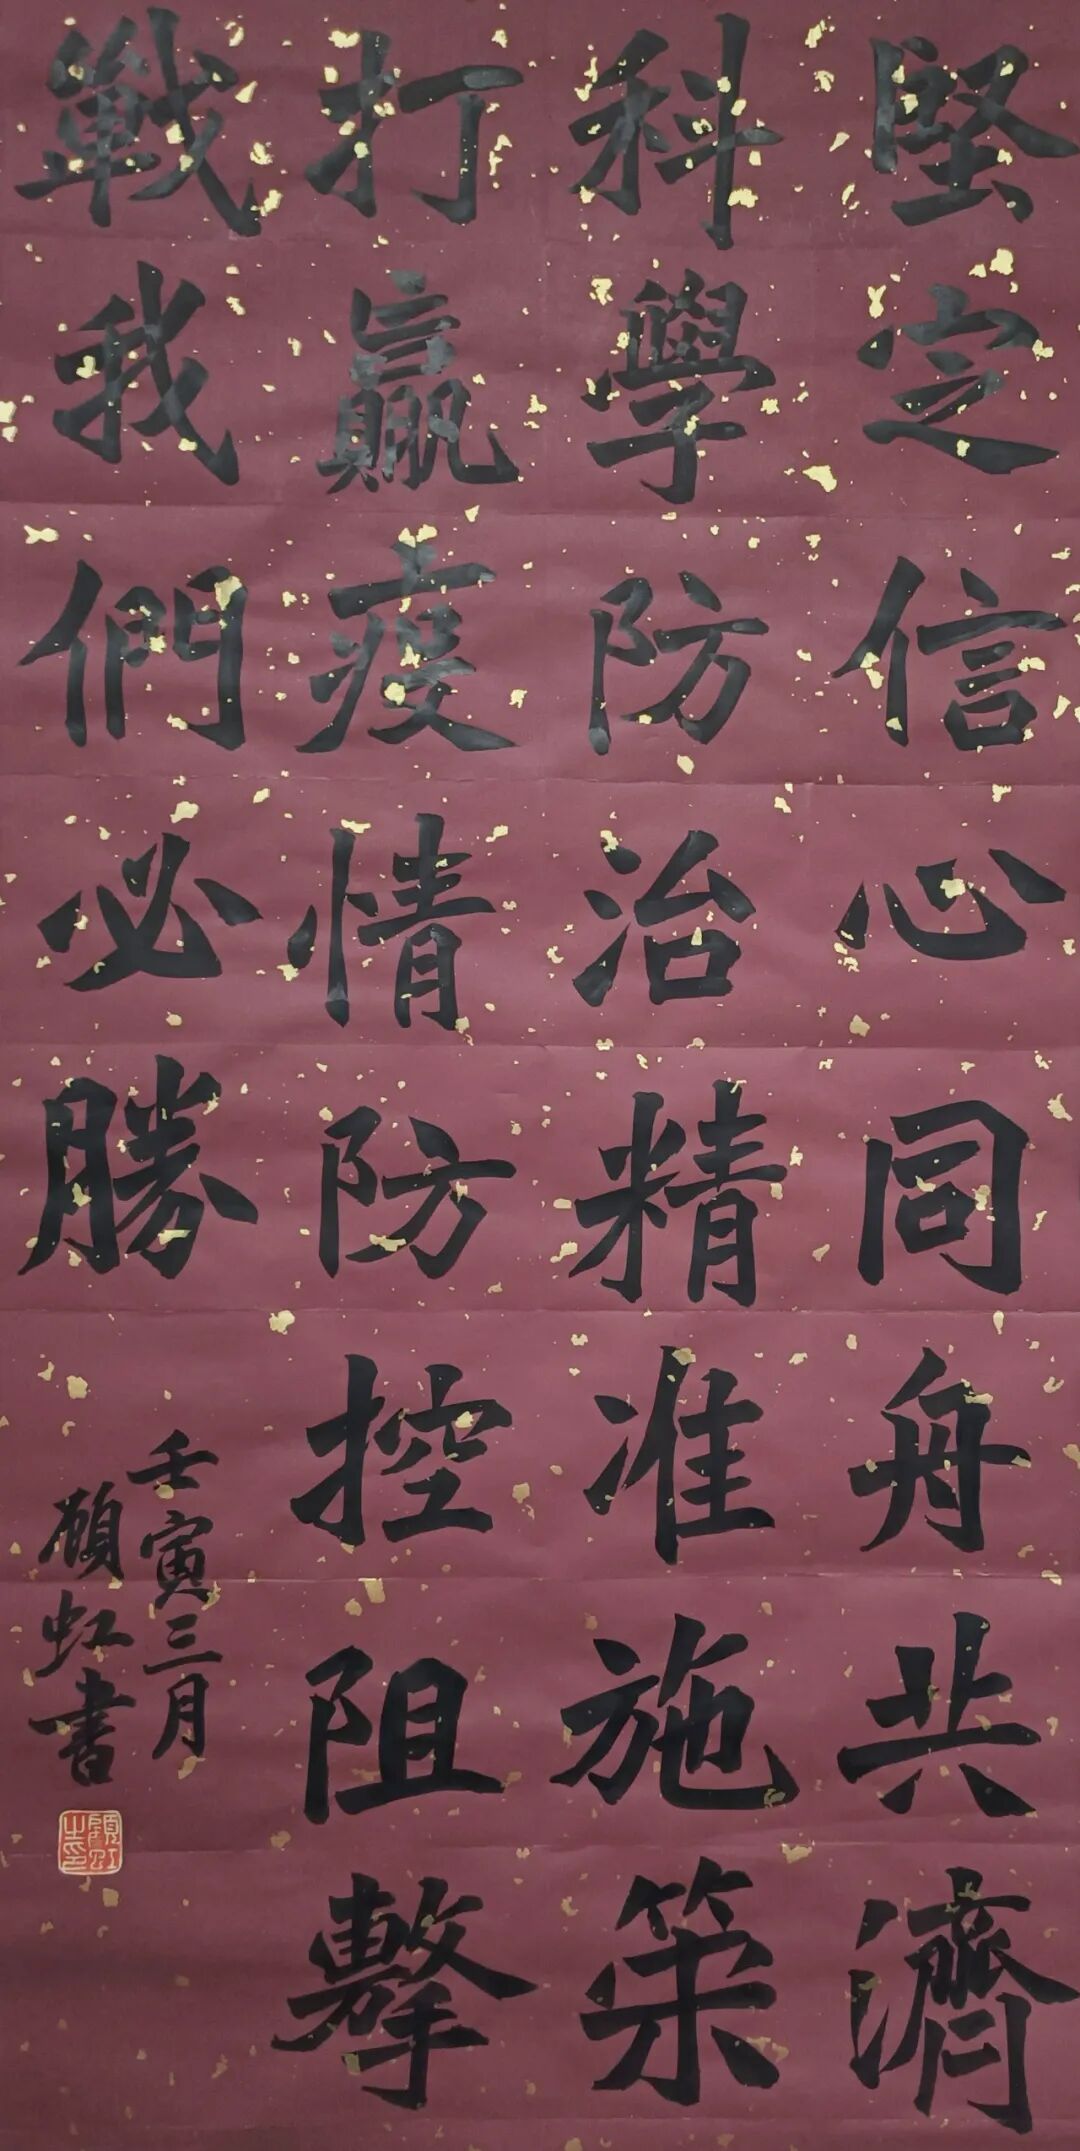 堅定信心同舟共濟
科學防治精准施策
打贏疫情防控阻擊
戰我們必勝
壬寅三月
顧虹書
顧虹之印